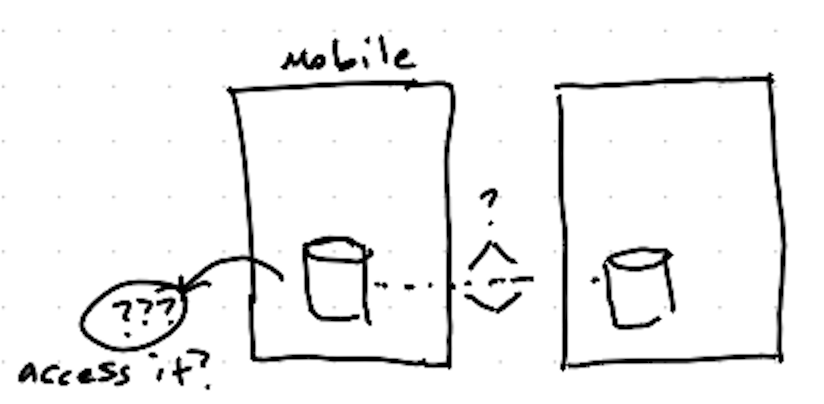 Mobile
?
???
access it?